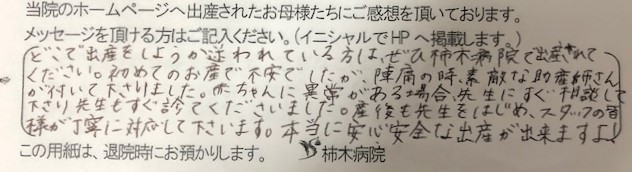 当院のホームページへ出産されたお母様たちにご感想を頂いております。
メッセージを頂ける方はご記入ください。(イニシャルでHPへ掲載します。)
どこで出産をしようか迷われている方は、ぜひ柿木病院で出産されて
ください。初めてのお産で不安でしたが、陣痛の時、素敵な助産師さん
が付いて下さりました。赤ちゃんに異常がある場合、先生にすぐ相談して
下さり先生もすぐ診てくださいました。産後も先生をはじめ、スタッフの皆
様が丁寧に対応して下さいます。本当に安心安全な出産が出来ますよ!
この用紙は、退院時にお預かりします。 柿木病院